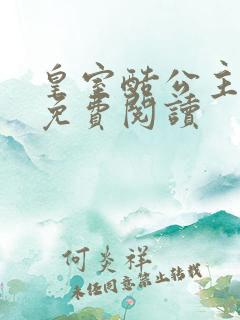 皇室酷公主
免費閱讀
何炎祥
未经同意禁止转载